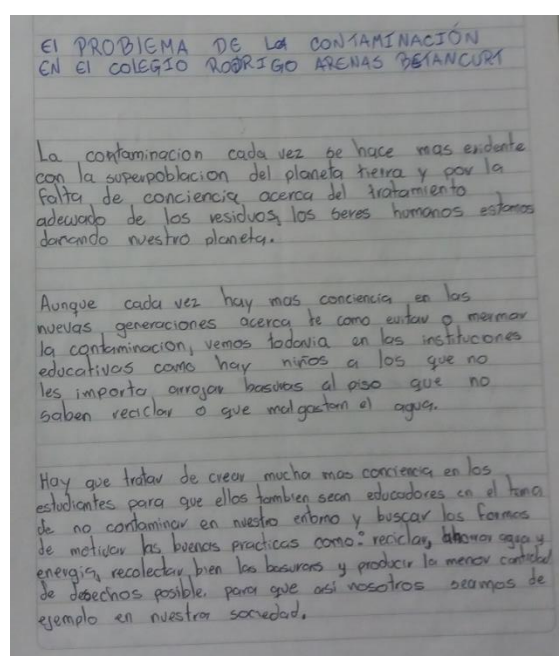 El PROBLEMA DE LA CONTAMINACIÓN
EN El COLEGIO RODRIGO ARENAS BETANCURT
La contaminacion cada vez se hace mas evidente
con la superpoblacion del planeta tierra y por la
falta de conciencia acerca del tratamiento
adecuado de los residuos, los seres humanos estamos
danando nuestro planeta.
Aunque cada vez hay mas conciencia en las
nuevas generaciones acerca te como evitar o mermar
la contaminacion, vemos todavia en las instituciones
educativas como hay niños a los que no
les importa arrojar basuras al piso que no
saben reciclar o que malgastan el agua.
Hay que tratar de crear mucha mas conciencia en los
estudiantes para que ellos tambien sean educadores en el tema
de no contaminar en nuestro entorno y buscar las formas
de motivar las buenas practicas como: reciclar, ahorrar agua y
energia, recolectar bien las basuras y producir la menor cantidad
de desechos posible, para que asi nosotros seamos de
ejemplo en nuestra sociedad.